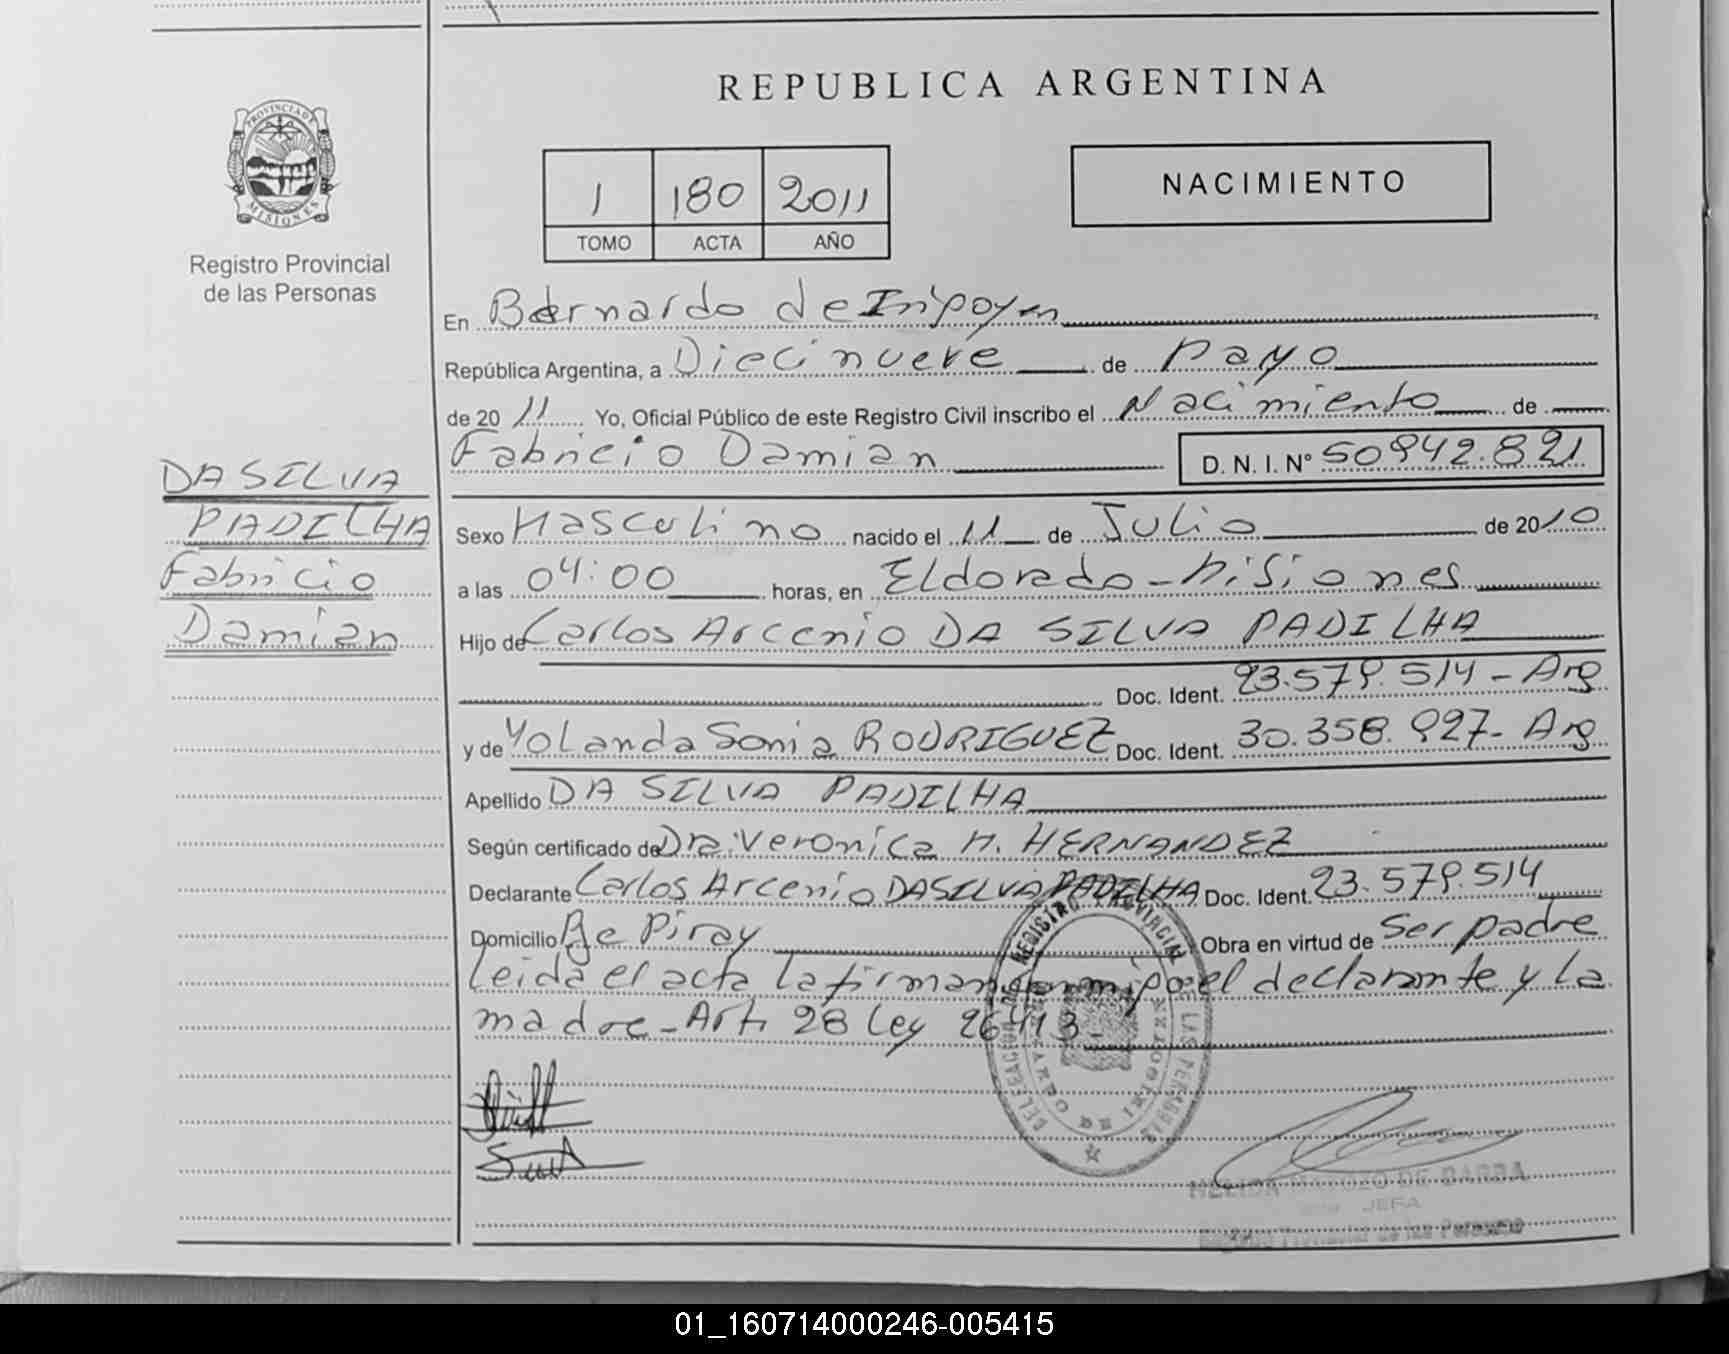 REPUBLICA ARGENTINA
PROVINCIA DE
MISIONES
Registro Provincial
de las Personas
1 180 2011
TOMO ACTA AÑO
NACIMIENTO
En Bernardo de Irigoyen
República Argentina, a Diecinueve de Mayo
de 20 11 Yo, Oficial Público de este Registro Civil inscribo el Nacimiento de
Fabricio Damian D. N. I. Nº 50.842.821
DA SILVA
PADILHA
Fabricio
Damian
Sexo Masculino nacido el 11 de Julio de 2010
a las 04:00 horas, en Eldorado - Misiones
Hijo de Carlos Arcenio DA SILVA PADILHA
Doc. Ident. 23.579.514 - Arg
y de Yolanda Sonia RODRIGUEZ Doc. Ident. 30.358.927 - Arg
Apellido DA SILVA PADILHA
Según certificado de Dra. Veronica M. HERNANDEZ
Declarante Carlos Arcenio DA SILVA PADILHA Doc. Ident. 23.579.514
Domicilio Pje Piray Obra en virtud de Ser padre
Leida el acta la firman conmigo el declarante y la
madre - Art. 28 Ley 26413
REGISTRO PROVINCIAL DE LAS PERSONAS
DELEGACION
JEFA
Registro Provincial de las Personas
01_160714000246-005415